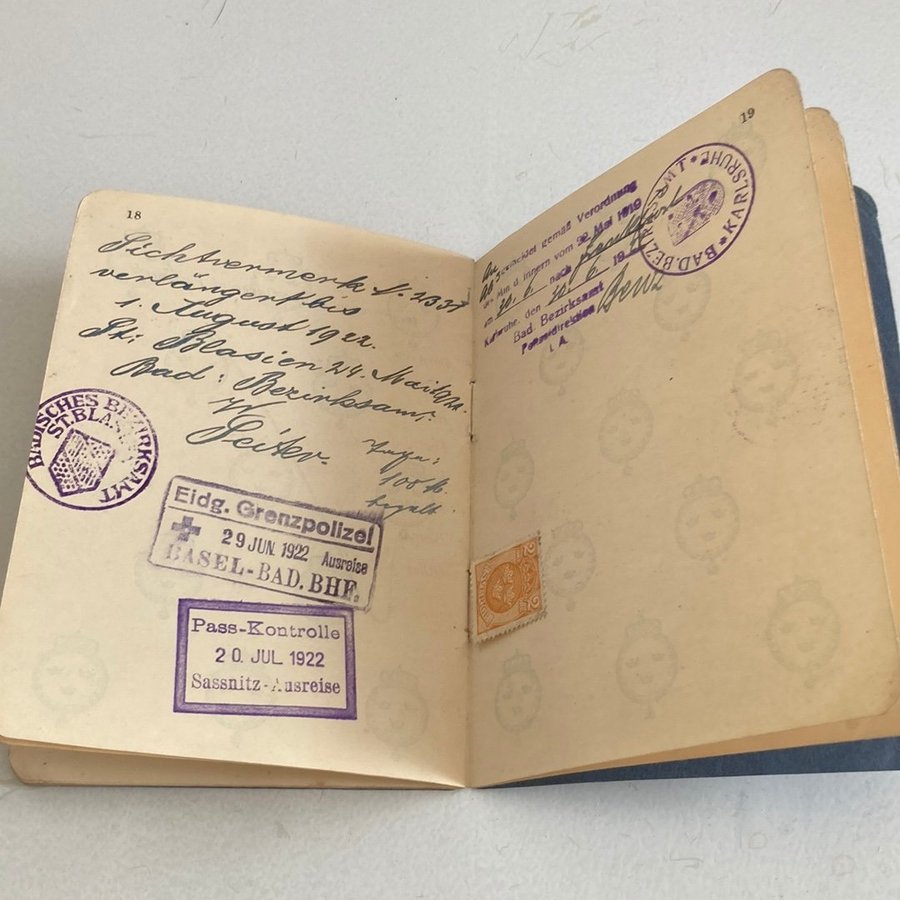 18
Sichtvermerk N. 2337
verlängert bis
1. August 1922.
St: Blasien 24. Mai 1922.
Bad: Bezirksamt.
Seiter.
Taxe:
100 M.
bezahlt.
BADISCHES BEZIRKSAMT
ST. BLASIEN
Eidg. Grenzpolizei
29 JUN. 1922 Ausreise
BASEL-BAD. BHF.
Pass-Kontrolle
20. JUL 1922
Sassnitz-Ausreise
19
BAD. BEZIRKSAMT * KARLSRUHE *
gemäß Verordnung
Min. d. Innern vom 22. Mai 1919
am 20. 6. nach Frankfurt
Karlsruhe, den 20. 6. 19
Bad. Bezirksamt
Polizeidirektion
i. A.
Benz
2 2